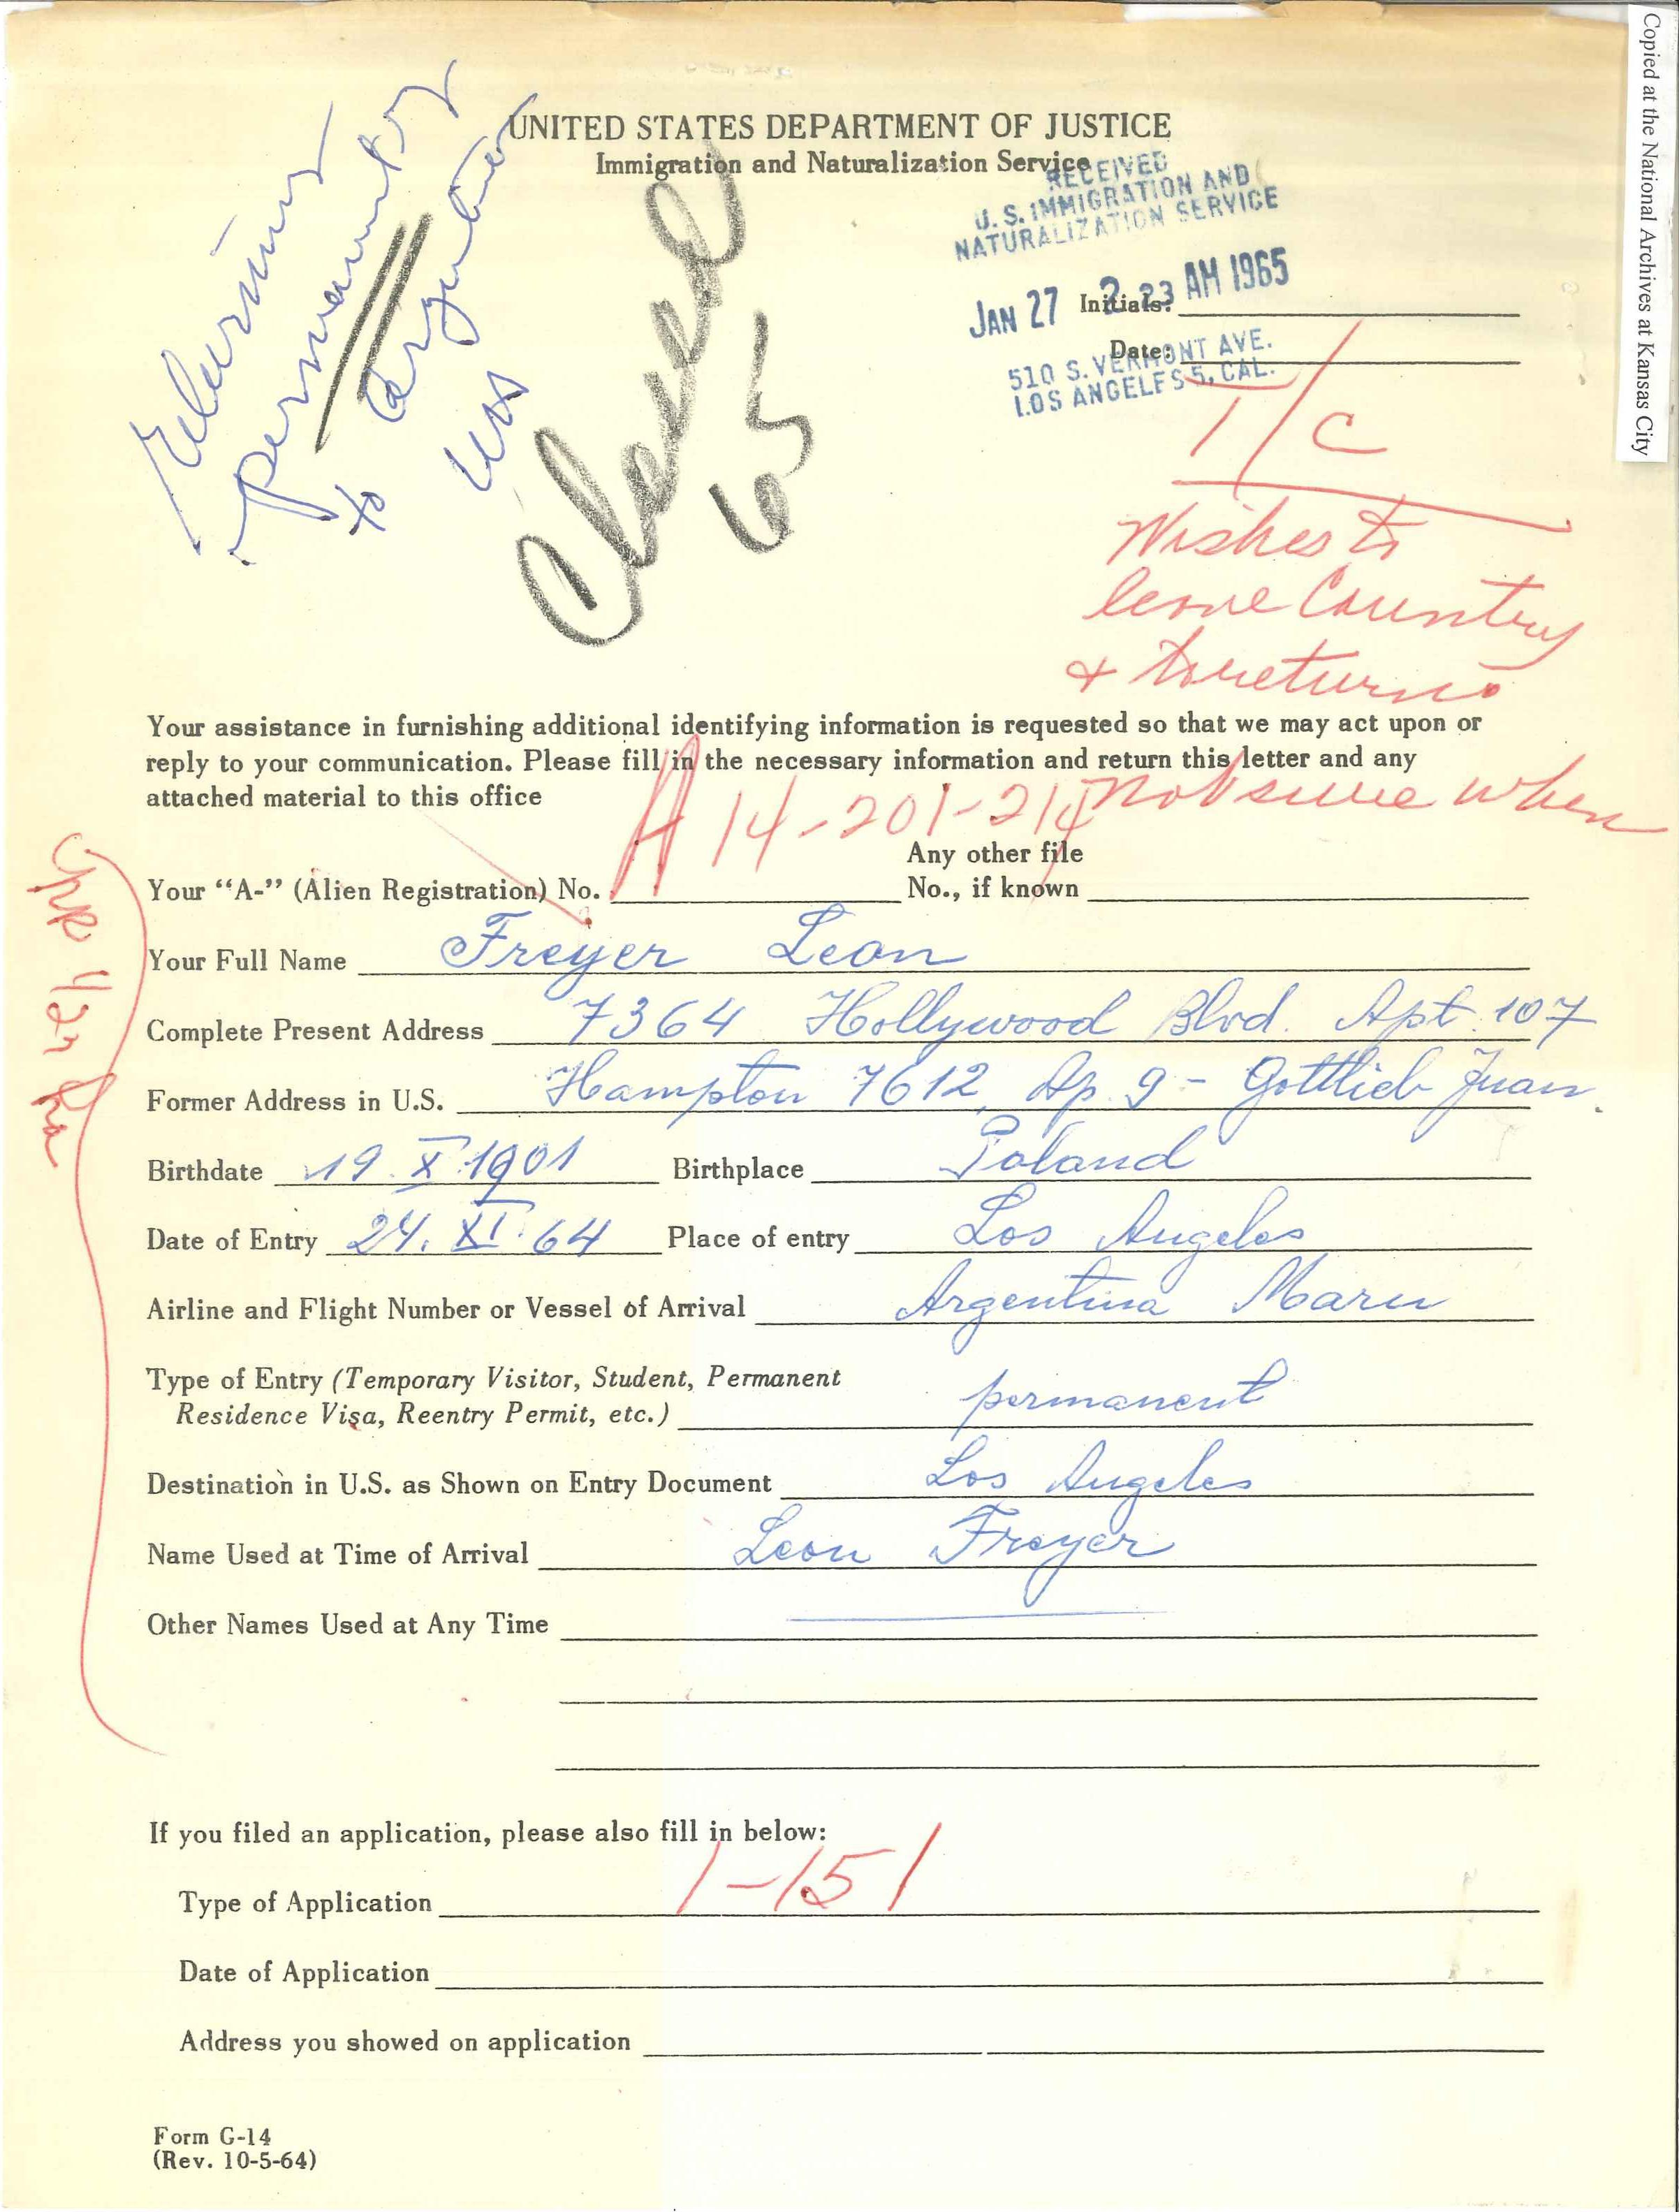 Copied at the National Archives at Kansas City
UNITED STATES DEPARTMENT OF JUSTICE
Immigration and Naturalization Service
RECEIVED
U. S. IMMIGRATION AND
NATURALIZATION SERVICE
JAN 27 2 23 AM 1965
510 S. VERMONT AVE.
LOS ANGELES 5, CAL.
Initials:
Date:
Returning
permanently
to Argentina
Closed
65
1/C
Wishes to
leave Country
& to return
not sure when
Your assistance in furnishing additional identifying information is requested so that we may act upon or
reply to your communication. Please fill in the necessary information and return this letter and any
attached material to this office
Your “A-” (Alien Registration) No. A14-201-214 Any other file
No., if known
Your Full Name Freyer Leon
Complete Present Address 7364 Hollywood Blvd. Apt. 107
Former Address in U.S. Hampton 7612, Ap. 9 - Gottlieb Juan.
Birthdate 19. X. 1901 Birthplace Poland
Date of Entry 24. XI. 64 Place of entry Los Angeles
Airline and Flight Number or Vessel of Arrival Argentina Maru
Type of Entry (Temporary Visitor, Student, Permanent
Residence Visa, Reentry Permit, etc.) permanent
Destination in U.S. as Shown on Entry Document Los Angeles
Name Used at Time of Arrival Leon Freyer
Other Names Used at Any Time
If you filed an application, please also fill in below:
Type of Application I-151
Date of Application
Address you showed on application
Form G-14
(Rev. 10-5-64)